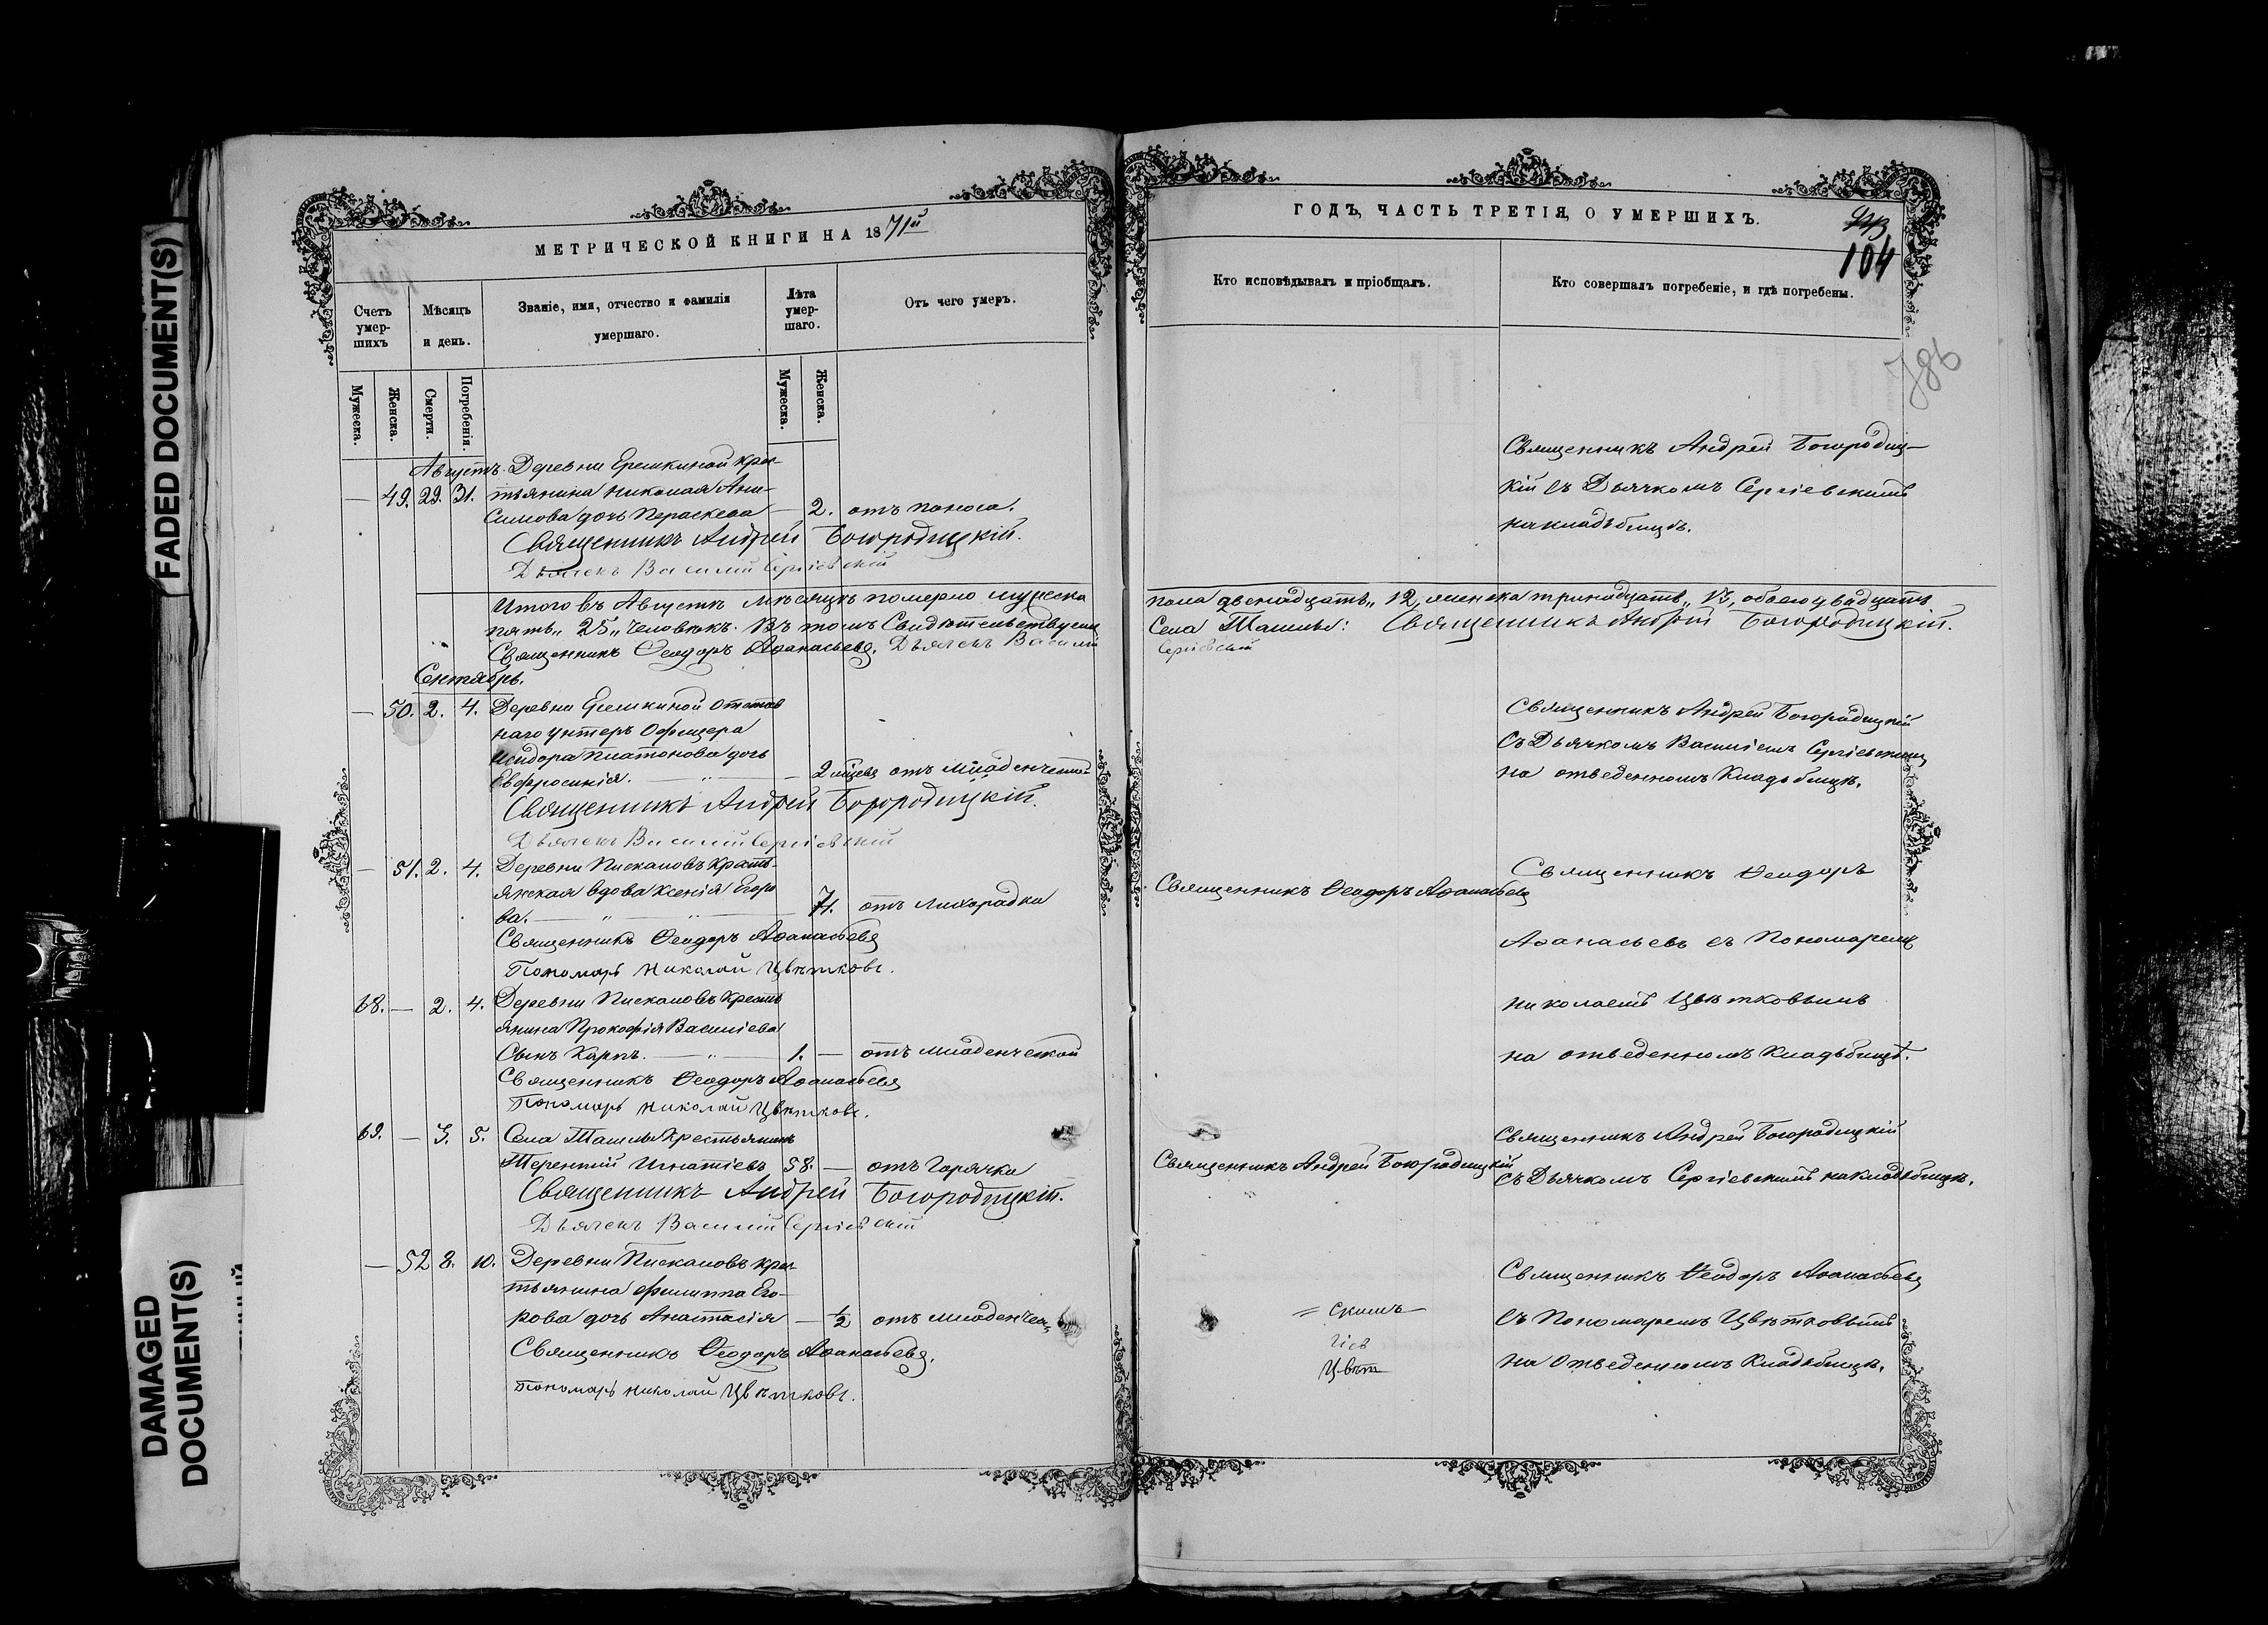 FADED DOCUMENT(S)
DAMAGED
DOCUMENT(S)
МЕТРИЧЕСКОЙ КНИГИ НА 1871й
Счетъ умер-шихъ
Мѣсяцъ и день.
Званіе, имя, отчество и фамилія
умершаго.
Лѣта умер-шаго.
Отъ чего умеръ.
Мужеска.
Женска.
Смерти.
Погребенія.
Мужеска.
Женска.
Августъ. Деревни Еремкиной кре-
— 49. 29. 31. стьянина Николая Ани-
симова дочь Параскева — 2. отъ поноса.
Священникъ Андрей Богородицкій.
Дьячекъ Василій Сергіевскій
Итого въ Августѣ мѣсяцѣ померло мужеска
пять „25„ человѣкъ. Въ томъ свидѣтельствуемъ
Священникъ Ѳеодоръ Аѳанасьевъ. Дьячекъ Василій
Сентябрь.
— 50. 2. 4. Деревни Еремкиной отстав
наго унтеръ офицера
Исидора Платонова дочь
Евфросинія. — „ — 2 мѣсяц отъ младенческой
Священникъ Андрей Богородицкій.
Дьячекъ Василій Сергіевскій
— 51. 2. 4. Деревни Пискаловъ кресть-
янская вдова Ксенія Егоро
ва. — „ — „ — 71. отъ лихорадки
Священникъ Ѳеодоръ Аѳанасьевъ
Пономарь Николай Цвѣтковъ.
68. — 2. 4. Деревни Пискаловъ кресть
янина Прокофія Василіева
сынъ Карпъ. — „ — 1. — отъ младенческой
Священникъ Ѳеодоръ Аѳанасьевъ
Пономарь Николай Цвѣтковъ.
69. — 3. 5. Села Ташлы крестьянинъ
Терентій Игнатіевъ 58. — отъ горячки
Священникъ Андрей Богородицкій.
Дьячекъ Василій Сергіевскій
— 52 8. 10. Деревни Пискаловъ кре-
стьянина Филиппа Его-
рова дочь Анастасія — 1/2 отъ младенчес
Священникъ Ѳеодоръ Аѳанасьевъ.
Пономарь Николай Цвѣтковъ.
ГОДЪ, ЧАСТЬ ТРЕТІЯ, О УМЕРШИХЪ.
104
Кто исповѣдывалъ и пріобщалъ.
Кто совершалъ погребеніе, и гдѣ погребены.
Священникъ Андрей Богородиц-
кій съ Дьячкомъ Сергіевскимъ
на кладбищѣ.
пола двенадцать „12„ женска тринадцать „13„ обоего двадцать
Села Ташлы: Священникъ Андрей Богородицкій.
Сергіевскій
Священникъ Андрей Богородицкій
съ Дьячкомъ Василіемъ Сергіевскимъ
на отведенномъ кладбищѣ.
Священникъ Ѳеодоръ Аѳанасьевъ
Священникъ Ѳеодоръ
Аѳанасьевъ съ Пономаремъ
Николаемъ Цвѣтковымъ
на отведенномъ кладбищѣ.
Священникъ Андрей Богородицкій
Священникъ Андрей Богородицкій
съ Дьячкомъ Сергіевскимъ на кладбищѣ.
Священникъ Ѳеодоръ Аѳанасьевъ
съ Пономаремъ Цвѣтковымъ
на отведенномъ кладбищѣ.
скимъ
гіев
Цвѣт